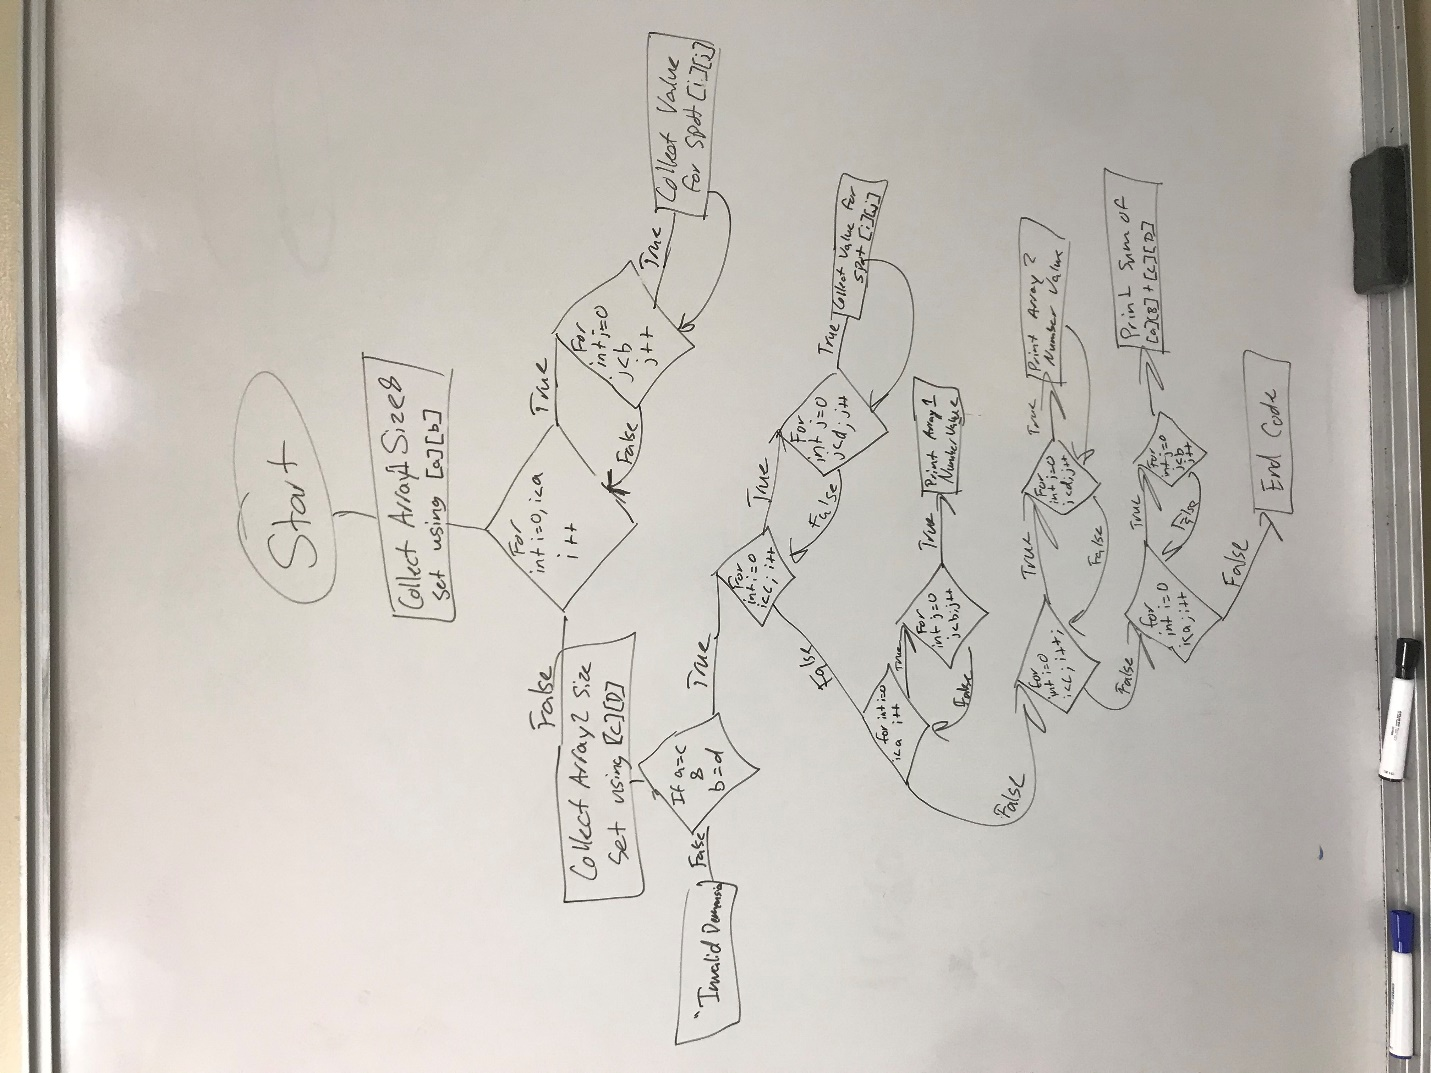 Start
Collect Array1 Size &
set using [a][b]
For
int i=0, i<a
i++
True
For
int j=0
j<b
j++
True
Collect Value
for Spot [i][j]
False
False
Collect Array2 Size
set using [c][D]
If a=c
&
b=d
False
"Invalid
True
For
int i=0
i<c; i++
True
For
int j=0
j<d; j++
True
Collect Value for
Spot [i][j]
False
False
For int i=0
i<a i++
True
For
int j=0
j<b; j++
True
Print Array 1
Number Value
False
False
for
int i=0
i<c; i++;
True
For
int j=0
j<d; j++
True
Print Array 2
Number Value
False
False
for
int i=0
i<a; i++
True
For
int j=0
j<b
j++
Print Sum of
[a][B]+[c][D]
False
False
End Code